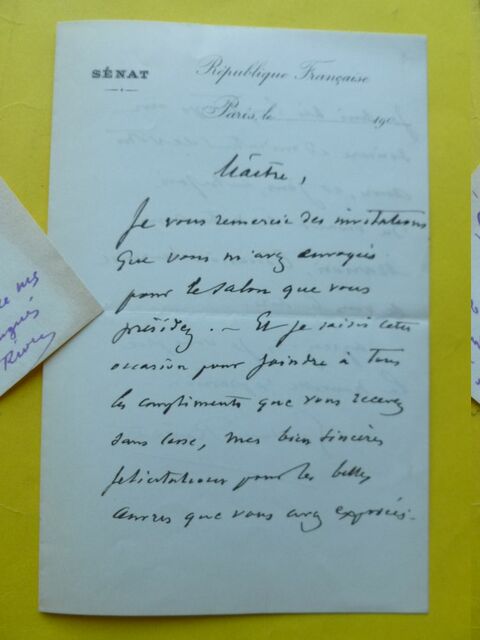 SÉNAT
République Française
Paris, le 190
Maître,
Je vous remercie des invitations
que vous m'avez envoyées
pour le Salon que vous
présidez. — Et je saisis cette
occasion pour joindre à tous
les compliments que vous recevez
sans cesse, mes bien sincères
félicitations pour les belles
œuvres que vous avez exposées.